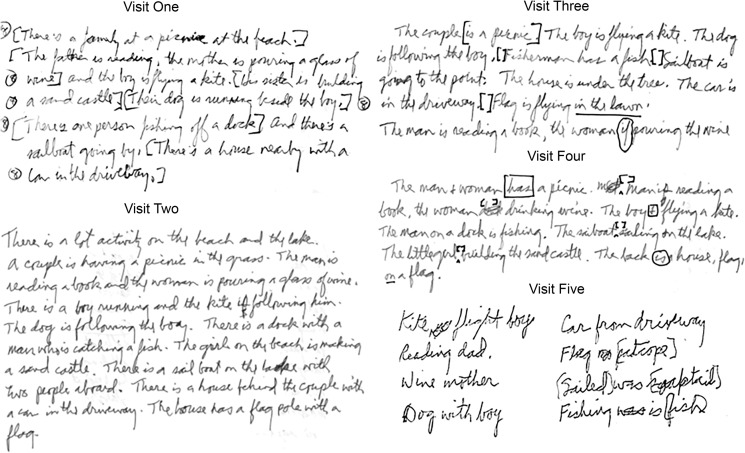 Visit One
[There's a family at a picnic at the beach.]
[The father is reading, the mother is pouring a glass of
wine] and the boy is flying a kite. [his sister is building
a sand castle] [Their dog is running beside the boy.]
[There's one person fishing off a dock] And there's a
sailboat going by. [There's a house nearby with a
car in the driveway.]
Visit Two
There is a lot activity on the beach and the lake.
A couple is having a picnic in the grass. The man is
reading a book and the woman is pouring a glass of wine.
There is a boy running and the kite is following him.
The dog is following the boay. There is a dock with a
man who is catching a fish. The girl on the beach is making
a sand castle. There is a sail boat on the lake with
two people aboard. There is a house behind the couple with
a car in the driveway. The house has a flag pole with a
flag.
Visit Three
The couple [is a picnic] The boy is flying a kite. The dog
is following the boy. [Fisherman has a fish [] Sailboat is
going to the point. The house is under the tree. The car is
in the driveway. [] Flag is flying in the lawn.
The man is reading a book, the woman if pouring the wine
Visit Four
The man & woman has a picnic. man [] reading a
book, the woman [] drinking wine. The boy is flying a kite.
The man on a dock is fishing. The sailboat [] sailing on the lake.
The little girl [] building the sand castle. The back is a house, flag
on a flag.
Visit Five
Kite flight boy
Reading dad.
Wine mother
Dog with boy
Car from driveway
Flag
[Sailed] was
Fishing was is fish